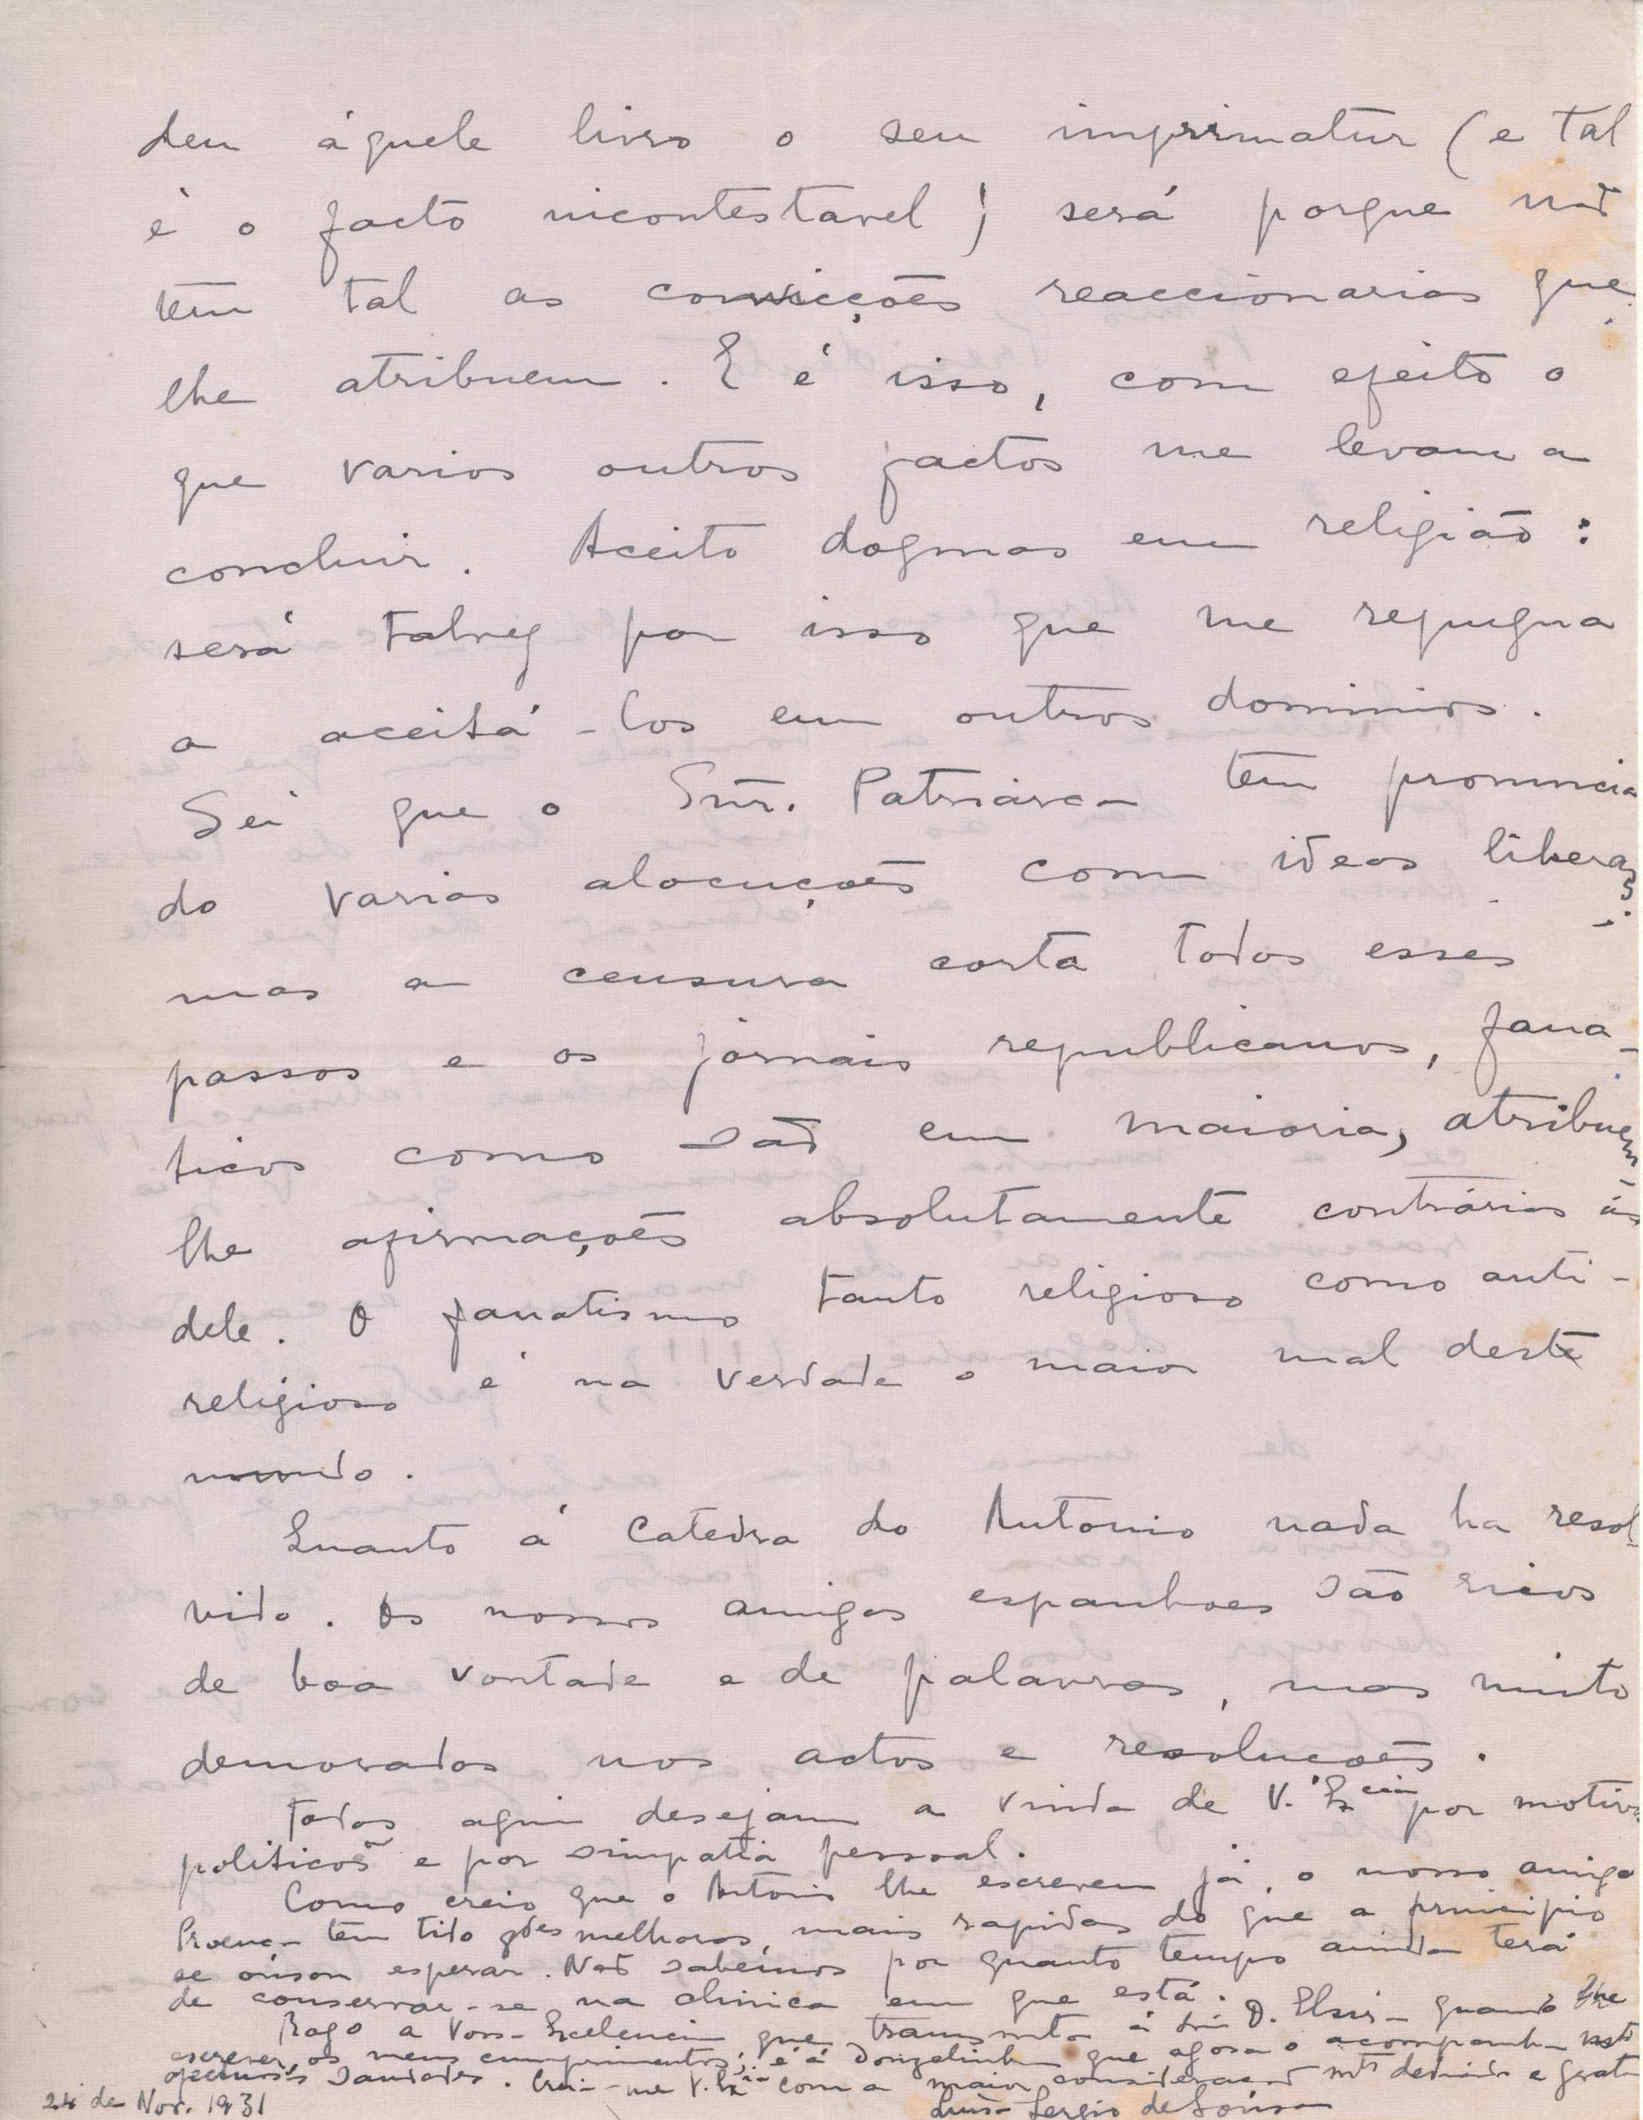 deu áquele livro o seu imprimatur (e tal
é o facto incontestavel) será porque não
tem tal as convicções reaccionarias que
lhe atribuem. E é isso, com efeito o
que varios outros factos me levam a
concluir. Aceito dogmas em religião:
será talvez por isso que me repugna
a aceitá-los em outros dominios.
Sei que o Snr. Patriarca tem pronuncia
do varias alocuções com ideas liberais;
mas a censura corta todos esses
passos e os jornais republicanos, fana-
ticos como são em maioria, atribuem-
lhe afirmações absolutamente contrárias ás
dele. O fanatismo tanto religioso como anti-
religioso é na verdade o maior mal deste
mundo.
Quanto á Catedra do Antonio nada ha resol-
vido. Os nossos amigos espanhoes são ricos
de boa vontade e de palavras, mas muito
demorados nos actos e resoluções.
Todos aqui desejam a vinda de V. Excia por motivos
politicos e por simpatia pessoal.
Como creio que o Antonio lhe escreveu já, o nosso amigo
Proença tem tido gdes melhoras, mais rapidas do que a principio
se ousou esperar. Não sabemos por quanto tempo ainda terá
de conservar-se na clinica em que está.
Rogo a Voss. Excelencia que transmita á D. Elsir- quando lhe
escrever, os meus cumprimentos; e á Donzelinha que agora o acompanha mto
afectuosas saudades. Creia-me V. Exa com a maior consideração mto dedicada e grata
Luisa Sergio de Sousa
24 de Nov. 1931